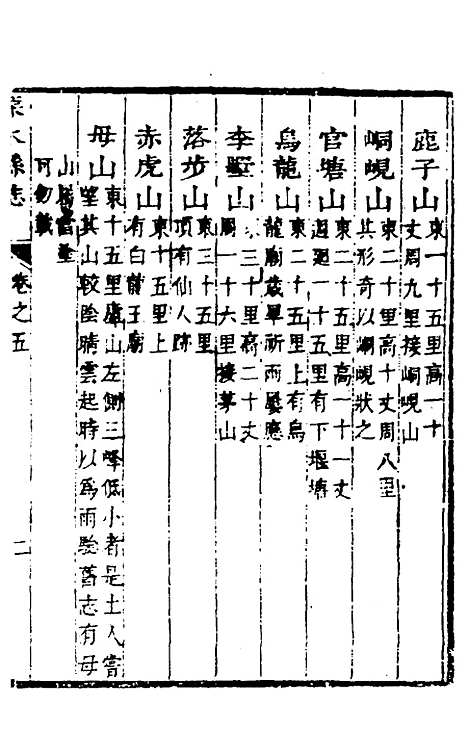 鹿子山東一十五里高一十
丈周九里接峒峴山
峒峴山東二十里高十丈周八里
其形奇以峒峴狀之
官塘山東二十五里高一十一丈
迴一十五里有下堰塘
烏龍山東二十五里上有烏
龍廟歲旱祈雨屢應
李墅山東三十里高二十丈
周一十六里接茅山
落步山東三十五里
頂有仙人跡
赤虎山東十五里上
有白龍王廟
母山東十五里廬山左側三峰低小者是土人嘗
望其山較陰晴雲起時以爲雨驗舊志有母
山
可勿載
水縣志
卷之五
二